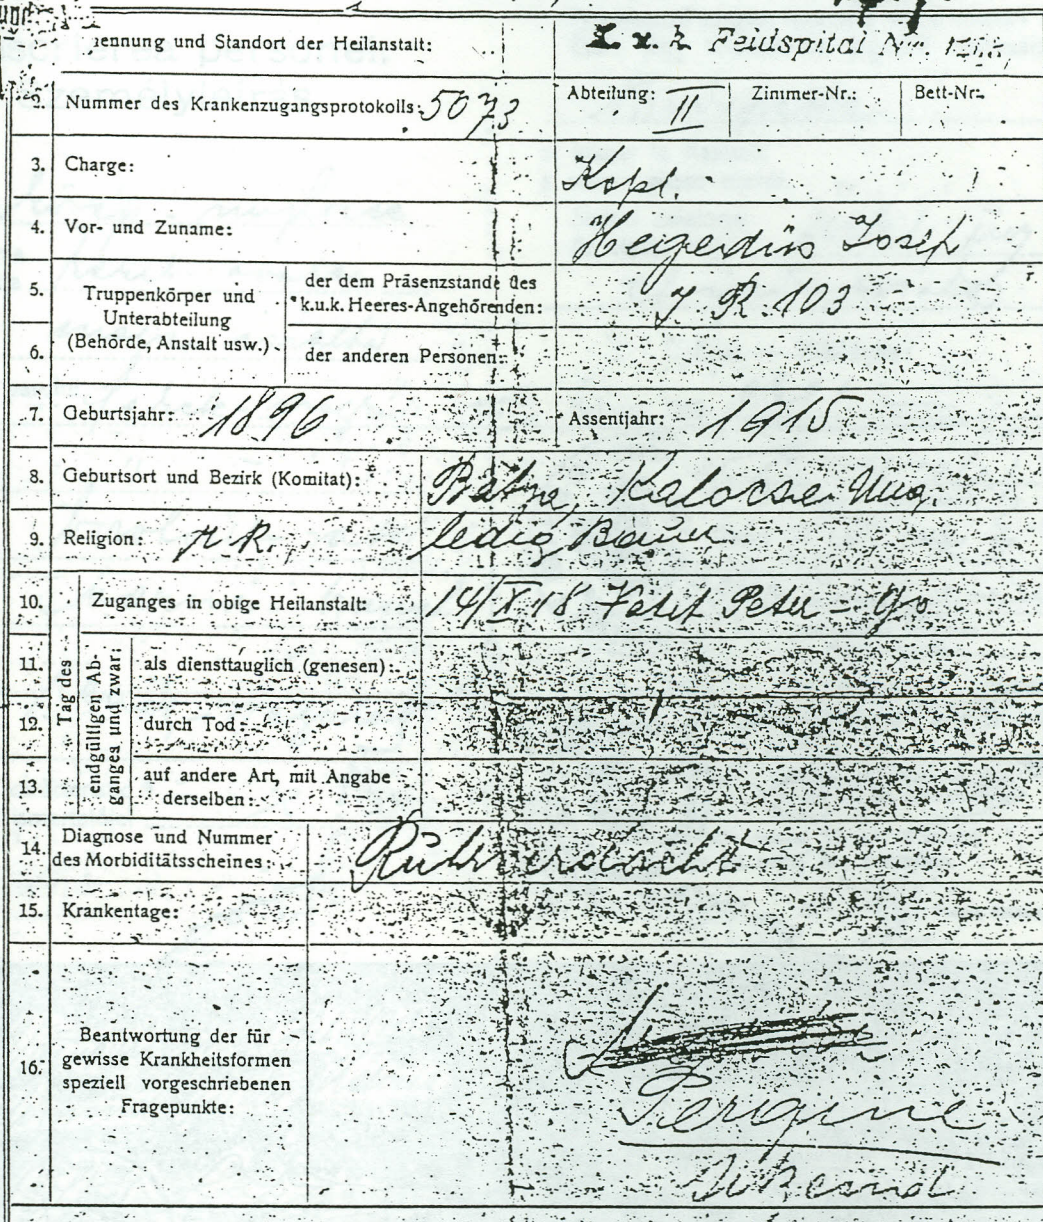 nennung und Standort der Heilanstalt: k. u. k. Feldspital Nr.
2. Nummer des Krankenzugangsprotokolls: 5073 Abteilung: II Zimmer-Nr.: Bett-Nr.:
3. Charge: Kopl.
4. Vor- und Zuname: Hegedüs Josef
5. Truppenkörper und Unterabteilung (Behörde, Anstalt usw.) der dem Präsenzstande des k.u.k. Heeres-Angehörenden: J. R. 103
6. der anderen Personen:
7. Geburtsjahr: 1896 Assentjahr: 1915
8. Geburtsort und Bezirk (Komitat): Bátya, Kalocsa Ung.
9. Religion: R. ledig Bauer
Tag des
10. Zuganges in obige Heilanstalt: 14/X 18 Peter
endgültigen Abganges und zwar:
11. als diensttauglich (genesen):
12. durch Tod:
13. auf andere Art, mit Angabe derselben:
14. Diagnose und Nummer des Morbiditätsscheines: Ruhrverdacht
15. Krankentage:
16. Beantwortung der für gewisse Krankheitsformen speziell vorgeschriebenen Fragepunkte:
Pergine